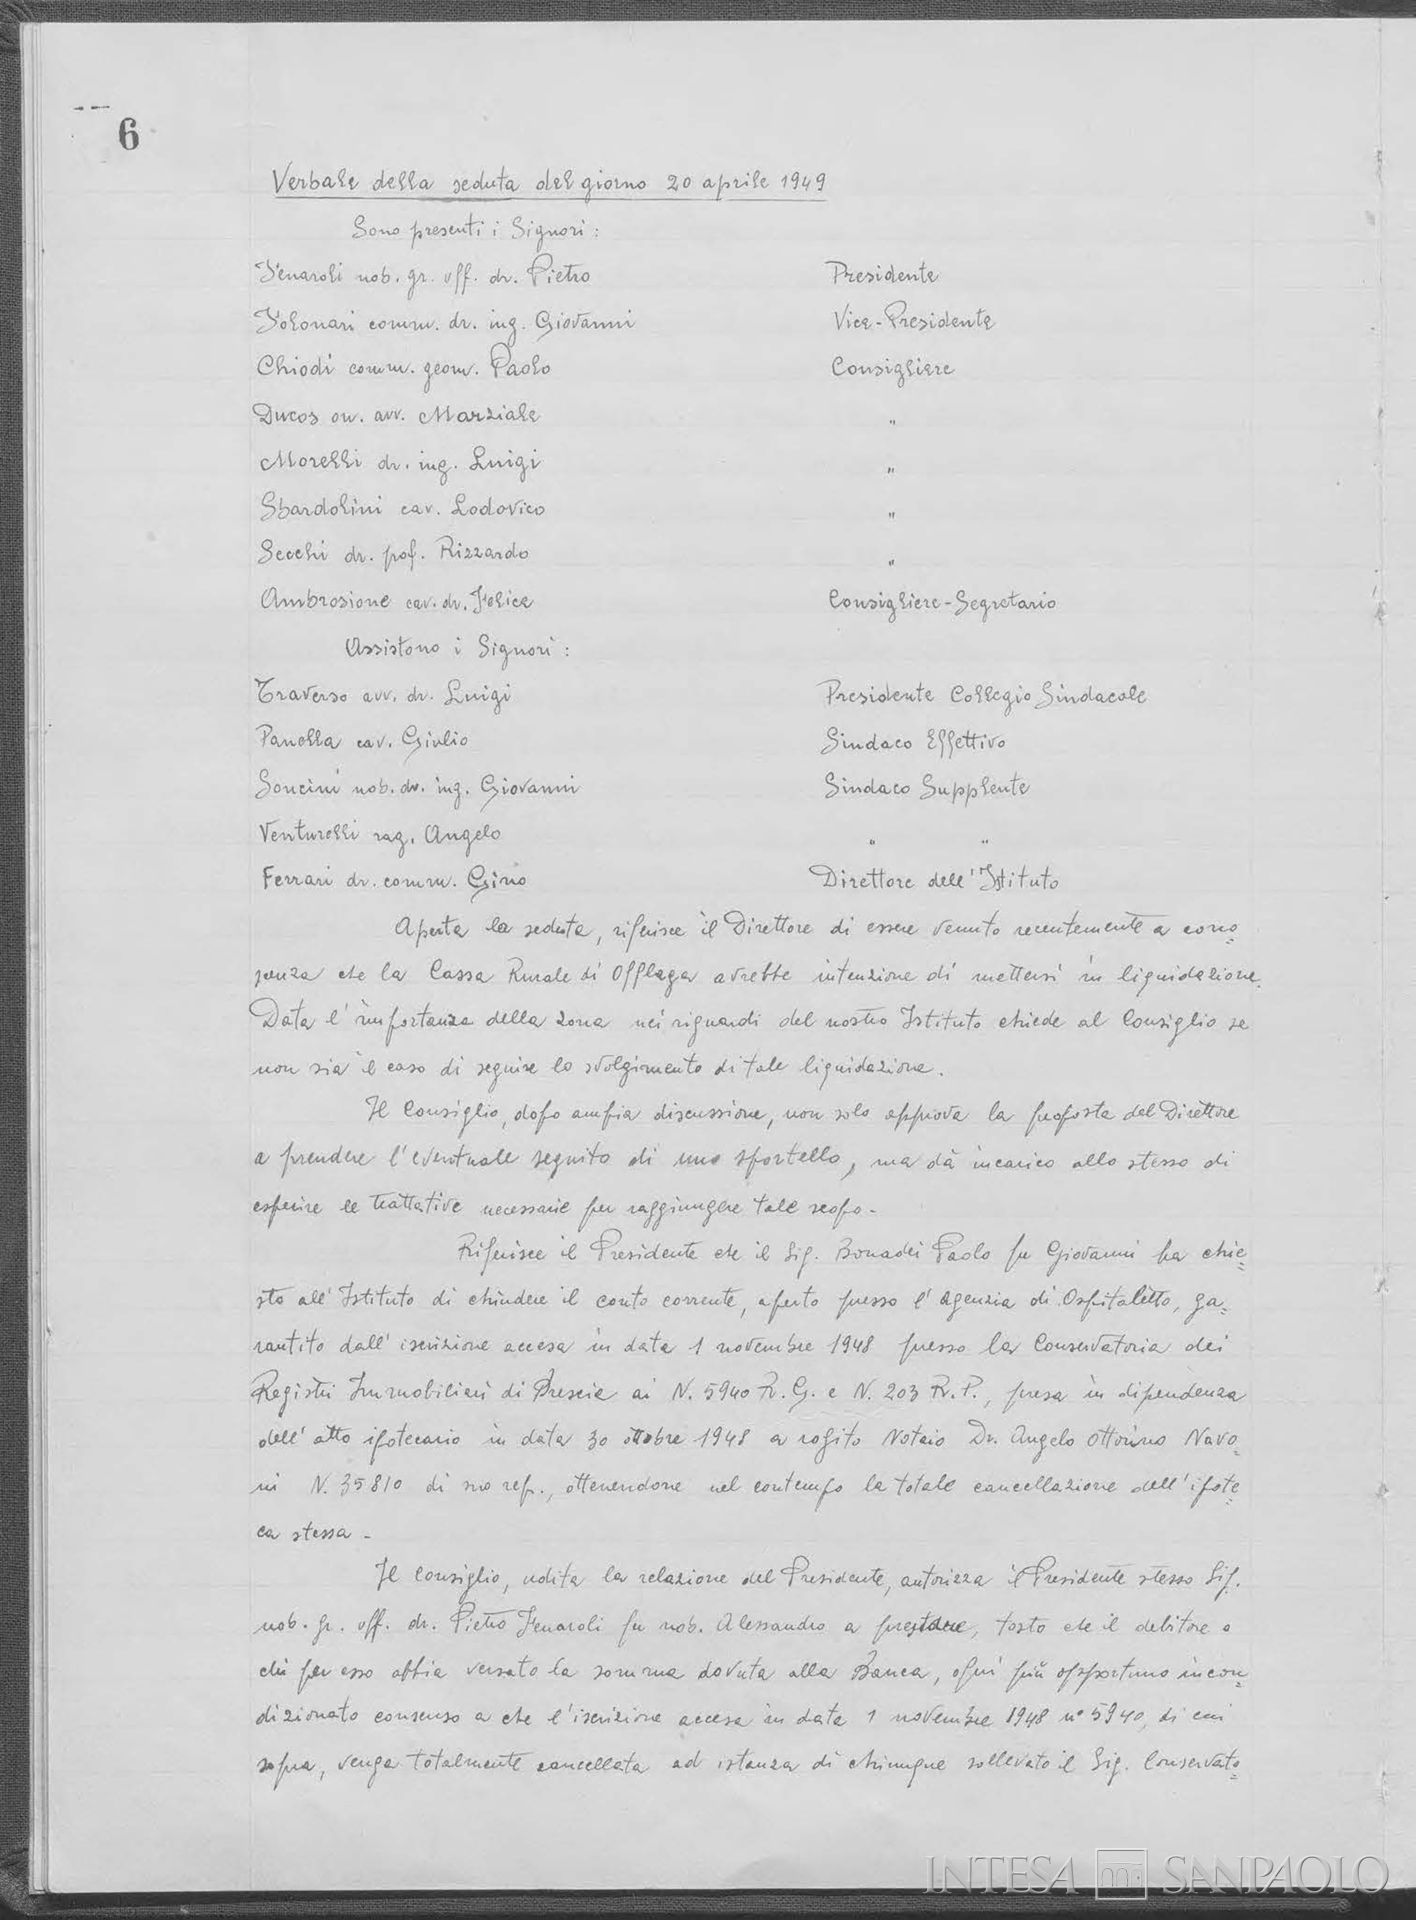 6
Verbale della seduta del giorno 20 aprile 1949
Sono presenti i Signori :
Fenaroli nob. gr. uff. dr. Pietro Presidente
Folonari comm. dr. ing. Giovanni Vice-Presidente
Chiodi comm. geom. Paolo Consigliere
Ducos on. avv. Marziale "
Morelli dr. ing. Luigi "
Sbardolini cav. Lodovico "
Secchi dr. prof. Rizzardo "
Ambrosione cav. dr. Felice Consigliere-Segretario
Assistono i Signori :
Traverso avv. dr. Luigi Presidente Collegio Sindacale
Panella cav. Giulio Sindaco Effettivo
Soncini nob. dr. ing. Giovanni Sindaco Supplente
Venturelli rag. Angelo " "
Ferrari dr. comm. Gino Direttore dell'Istituto
Aperta la seduta, riferisce il Direttore di essere venuto recentemente a cono=
scenza che la Cassa Rurale di Offlaga avrebbe intenzione di mettersi in liquidazione.
Data l'importanza della zona nei riguardi del nostro Istituto chiede al Consiglio se
non sia il caso di seguire lo svolgimento di tale liquidazione.
Il Consiglio, dopo ampia discussione, non solo approva la proposta del Direttore
a prendere l'eventuale seguito di uno sportello, ma dà incarico allo stesso di
esperire le trattative necessarie per raggiungere tale scopo -
Riferisce il Presidente che il Sig. Bonadei Paolo fu Giovanni ha chie=
sto all'Istituto di chiudere il conto corrente, aperto presso l'Agenzia di Ospitaletto, ga=
rantito dall'iscrizione accesa in data 1 novembre 1948 presso la Conservatoria dei
Registri Immobiliari di Brescia ai N. 5940 R. G. e N. 203 R. P., presa in dipendenza
dell'atto ipotecario in data 30 ottobre 1948 a rogito Notaio Dr. Angelo Ottorino Navo=
ni N. 35810 di suo rep., ottenendone nel contempo la totale cancellazione dell'ipote=
ca stessa -
Il Consiglio, udita la relazione del Presidente, autorizza il Presidente stesso Sig.
nob. gr. uff. dr. Pietro Fenaroli fu nob. Alessandro a prestare, tosto che il debitore o
chi per esso abbia versato la somma dovuta alla Banca, ogni più opportuno incon=
dizionato consenso a che l'iscrizione accesa in data 1 novembre 1948 n° 5940, di cui
sopra, venga totalmente cancellata ad istanza di chiunque sollevato il Sig. Conservato=
INTESA SANPAOLO